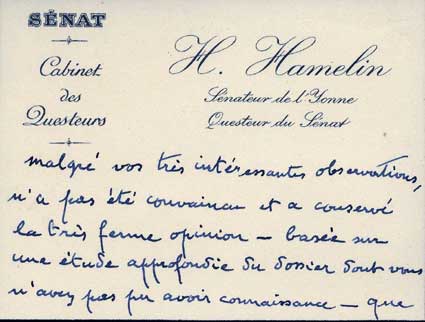 SÉNAT
Cabinet
des
Questeurs
H. Hamelin
Sénateur de l'Yonne
Questeur du Sénat
malgré vos très intéressantes observations,
n'a pas été convaincu et a conservé
la très ferme opinion — basée sur
une étude approfondie du dossier dont vous
n'avez pas pu avoir connaissance — que